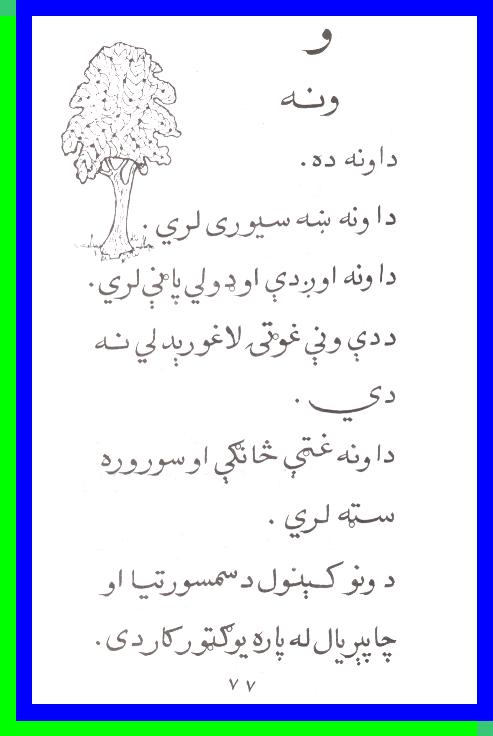 و
ونـه
دا ونه ده .
دا ونه ښه سیوری لري .
دا ونه اوږدې او ډولي پاڼې لري.
ددې ونې غوټۍ لا غوړېدلي نـه
دي .
دا ونه غټې څانګې او سوروره
سټه لري .
د ونو کـېنول د سمسورتیـا او
چاپېریال له پاره یو ګټور کار دی .
۷۷